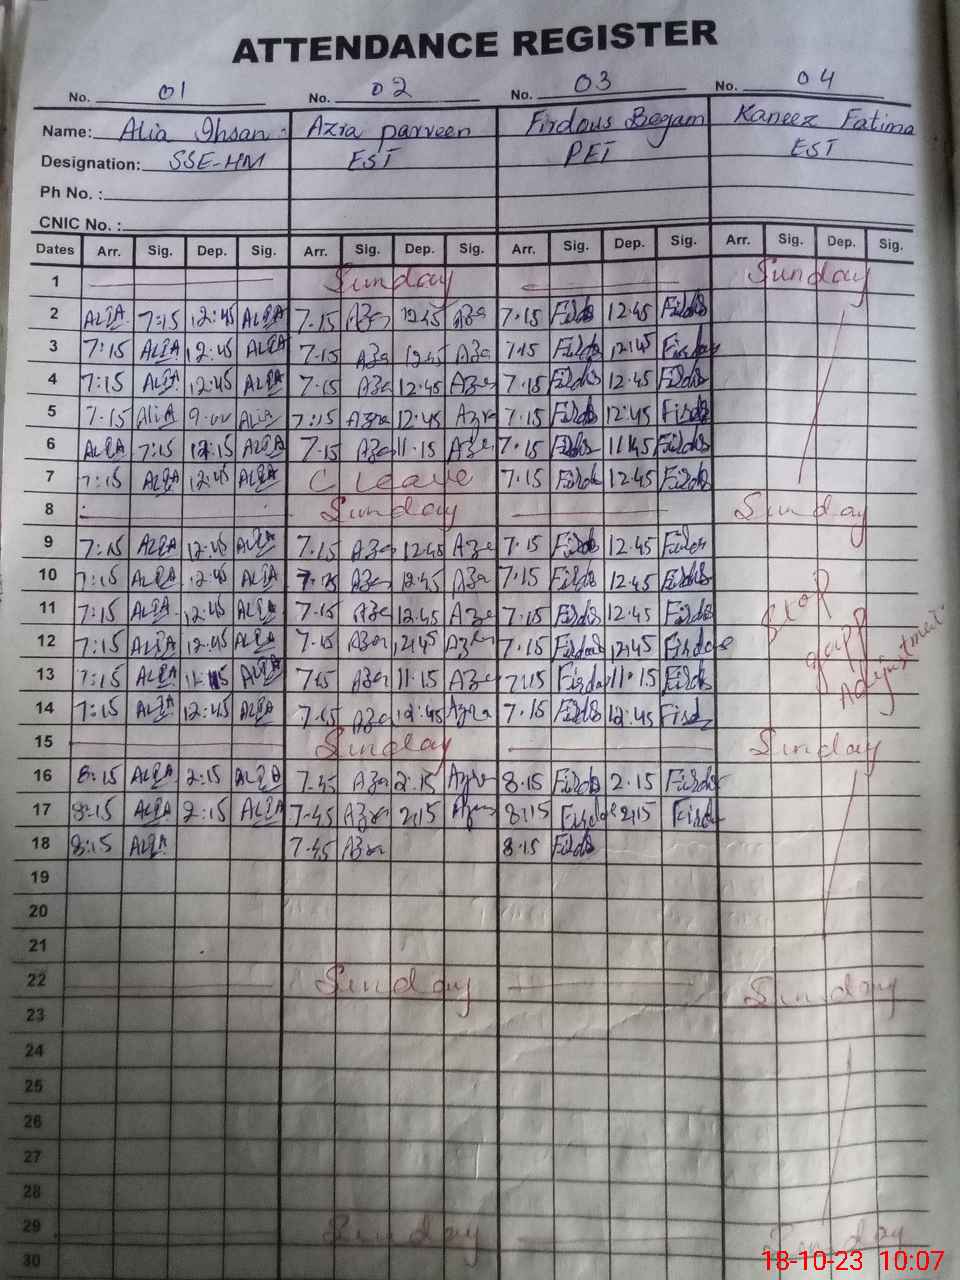 ATTENDANCE REGISTER
No. 01 No. 02 No. 03 No. 04
Name: Alia Ihsan Azia parveen Firdous Begam Kaneez Fatima
Designation: SSE-HM EST PET EST
Ph No. :
CNIC No. :
Dates Arr. Sig. Dep. Sig. Arr. Sig. Dep. Sig. Arr. Sig. Dep. Sig. Arr. Sig. Dep. Sig.
1 Sunday Sunday
2 ALIA 7:15 12:45 ALIA 7-15 Aza 12.45 Aza 7.15 Firds 12.45 Firds
3 7:15 ALIA 12:45 ALIA 7-15 Aza 12.45 Aza 7.15 Firds 12.45
4 7:15 ALIA 12:45 ALIA 7-15 Aza 12.45 Aza 7.15 Firds 12.45 Firds
5 7-15 AliA 9:00 Alia 7:15 Azra 12:45 Azra 7.15 Firds 12:45 Firds
6 ALIA 7:15 12:15 ALIA 7.15 Aza 11.15 Aza 7.15 Firds 11.45 Firds
7 7:15 ALIA 12:45 ALIA C Leave 7.15 Firds 12.45 Firds
8 Sunday Sunday
9 7:15 ALIA 12:45 ALIA 7.15 Aza 12.45 Aza 7.15 Firds 12.45
10 7:15 ALIA 12:45 ALIA 7.15 Aza 12.45 Aza 7.15 Firds 12.45 Firds
11 7:15 ALIA 12:45 ALIA 7-15 Aza 12.45 Aza 7.15 Firds 12.45 Firds
Stop
12 7:15 ALIA 12:45 ALIA 7.15 Aza 12.45 Aza 7.15 12.45
gapp
13 7:15 ALIA ALIA 7.15 Aza 11.15 Aza 7:15 11.15 Firds
Adjustment
14 7:15 ALIA 12:45 ALIA 7.15 Aza 12.45 Azra 7.15 Firds 12.45
15 Sunday Sunday
16 8:15 ALIA 2:15 ALIA 7-45 Aza 2.15 Azra 8.15 Firds 2.15 Firds
17 8:15 ALIA 2:15 ALIA 7-45 Aza 2.15 8:15 2.15
18 8:15 ALIA 7-45 Aza 8.15 Firds
19
20
21
22 Sunday Sunday
23
24
25
26
27
28
29 Sunday Sunday
30
18-10-23 10:07